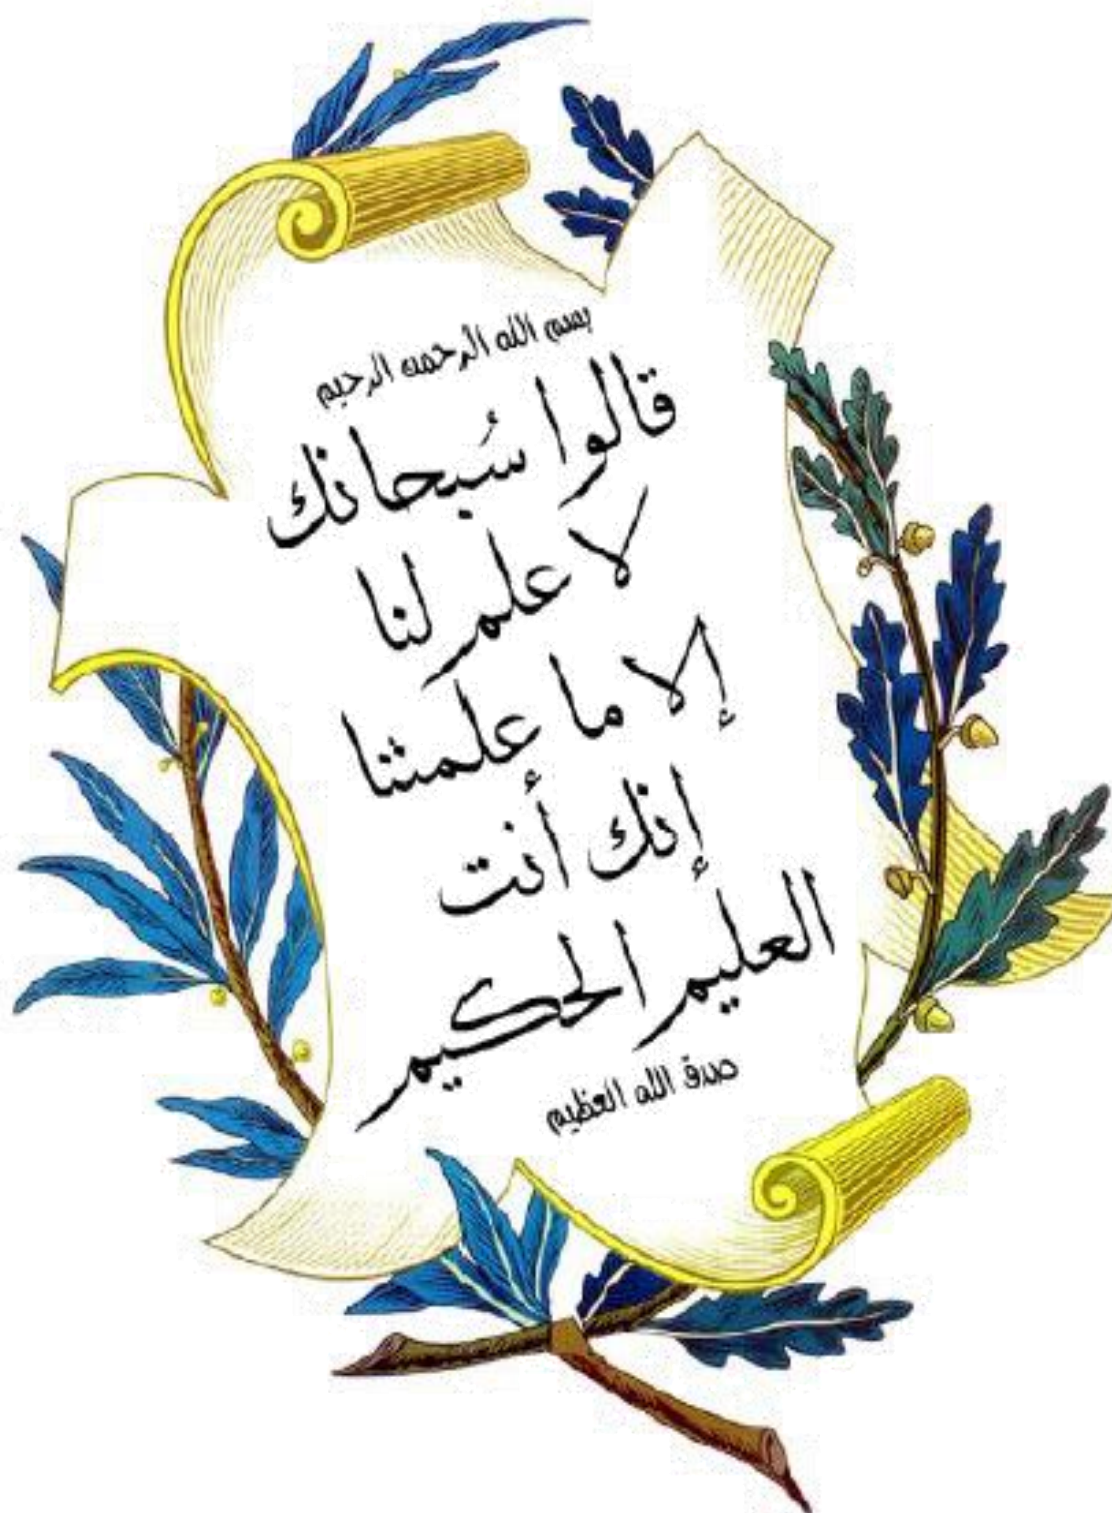 بسم الله الرحمن الرحيم
قالوا سُبحانك
لا علم لنا
إلا ما علمتنا
إنك أنت
العليم الحكيم
صدق الله العظيم